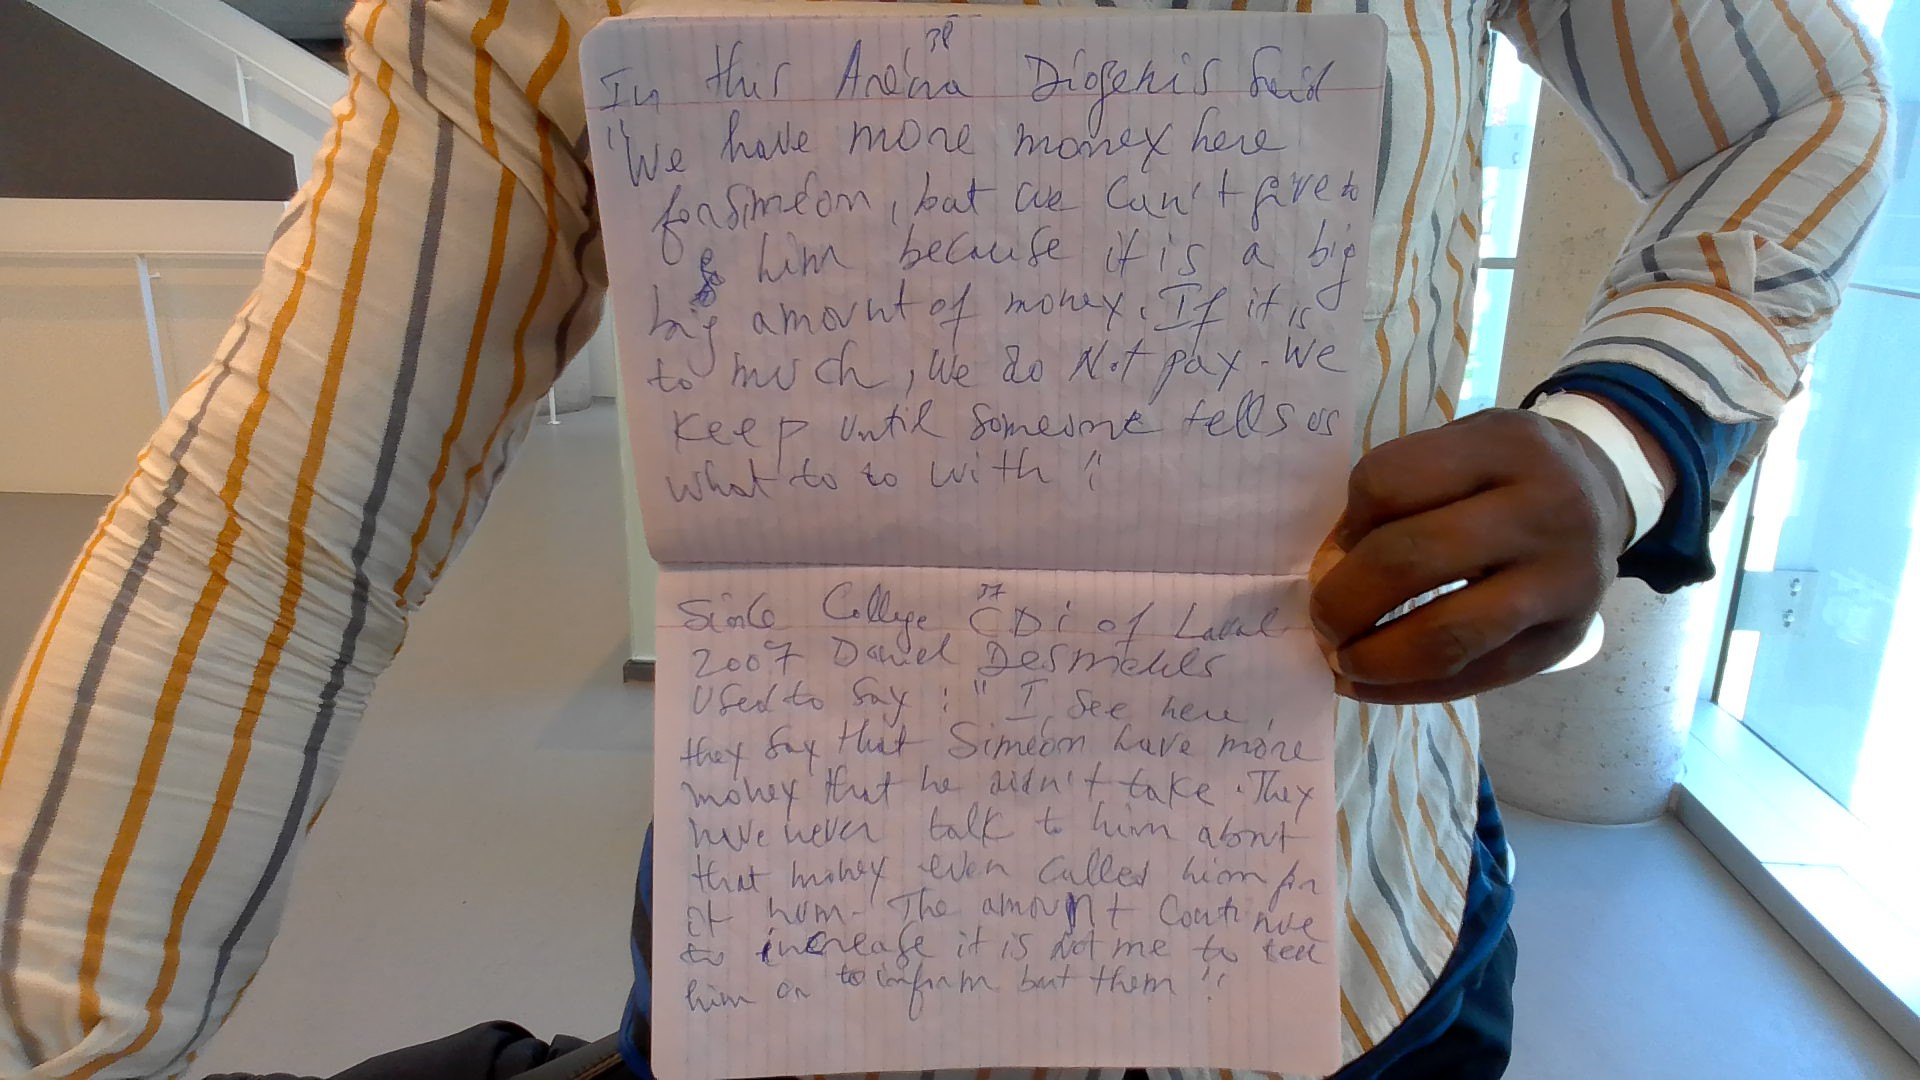 38
In this Aréna Diogenis said
"We have more money here
for Siméon, but we can't give to
him because it is a big
big amount of money. If it is
to much, we do Not pay. We
Keep until someone tells us
what to to with "
37
Since College CDi of Laval
2007 Daniel Desmeules
Used to say : " I see here,
they say that Siméon have more
money that he didn't take. They
have never talk to him about
that money even called him for
it hum. The amount continue
to increase it is not me to tell
him or to inform but them "